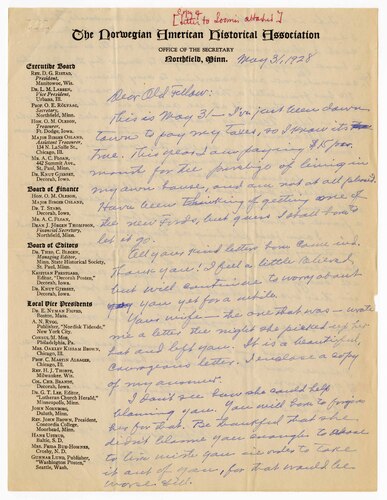 The Norwegian American Historical Association
OFFICE OF THE SECRETARY
Northfield, Minn.
May 31, 1928
Executive Board
REV. D. G. RISTAD,
President,
Manitowoc, Wis.
DR. L. M. LARSEN,
Vice President,
Urbana, Ill.
PROF. O. E. RÖLVAAG,
Secretary,
Northfield, Minn.
HON. O. M. OLESON,
Treasurer,
Ft. Dodge, Iowa.
MAJOR BIRGER OSLAND,
Assistant Treasurer,
134 N. LaSalle St.,
Chicago, Ill.
MR. A. C. FLOAN,
St. Paul, Minn.
DR. KNUT GJERSET,
Decorah, Iowa.
Board of Finance
HON. O. M. OLESON,
MAJOR BIRGER OSLAND,
DR. T. STABO,
Decorah, Iowa.
MR. A. C. FLOAN,
DEAN J. JÖRGEN THOMPSON,
Financial Secretary,
Northfield, Minn.
Board of Editors
DR. THEO. C. BLEGEN,
Managing Editor,
Minn. State Historical Society,
St. Paul, Minn.
KRISTIAN PRESTGARD,
Editor, "Decorah Posten,"
Decorah, Iowa.
DR. KNUT GJERSET,
Decorah, Iowa.
Local Vice Presidents
DR. E. NYMAN FIGVED,
Boston, Mass.
A. N. RYGG,
Publisher, "Nordisk Tidende,"
New York City.
CONSUL M. MOE,
Philadelphia, Pa.
MRS. OAKLEY KISSAM BROWN,
Chicago, Ill.
PROF. C. MARTIN ALSAGER,
Chicago, Ill.
REV. H. J. THORPE,
Milwaukee, Wis.
COL. CHR. BRANDT,
Decorah, Iowa.
DR. G. T. LEE, Editor
"Lutheran Church Herald,"
Minneapolis, Minn.
JOHN NORMANN,
Duluth, Minn.
REV. JOHN BROWN, President,
Concordia College,
Moorhead, Minn.
HANS USTRUD,
Baltic, S. D.
MRS. PEDRA BUE-HOMNES,
Crosby, N. D.
GUNNAR LUND, Publisher,
"Washington Posten,"
Seattle, Wash.
Dear Old Fellow:
This is May 31 – I've just been down
town to pay my taxes, so I know it's
true. This year I am paying $15 per
month for the privilege of living in
my own house, and am not at all pleased.
Have been thinking of getting one of
the new Fords, but guess I shall have to
let it go.
All your kind letters have come in.
Thank you! I feel a little relieved,
but will continue to worry about
you yet for a while.
Your wife – the one that was – wrote
me a letter the night she picked up her
hat and left you. It is a beautiful,
courageous letter. I enclose a copy
of my answer.
I don't see how she could help
blaming you. You will have to forgive
her for that. Be thankful that she
didn't blame you enough to
to live with you in order to take
it out of you, for that would be
worse still.